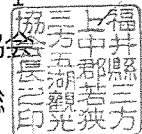 福井縣三方
上中郡若狭
三方五湖觀光
協会長之印
会